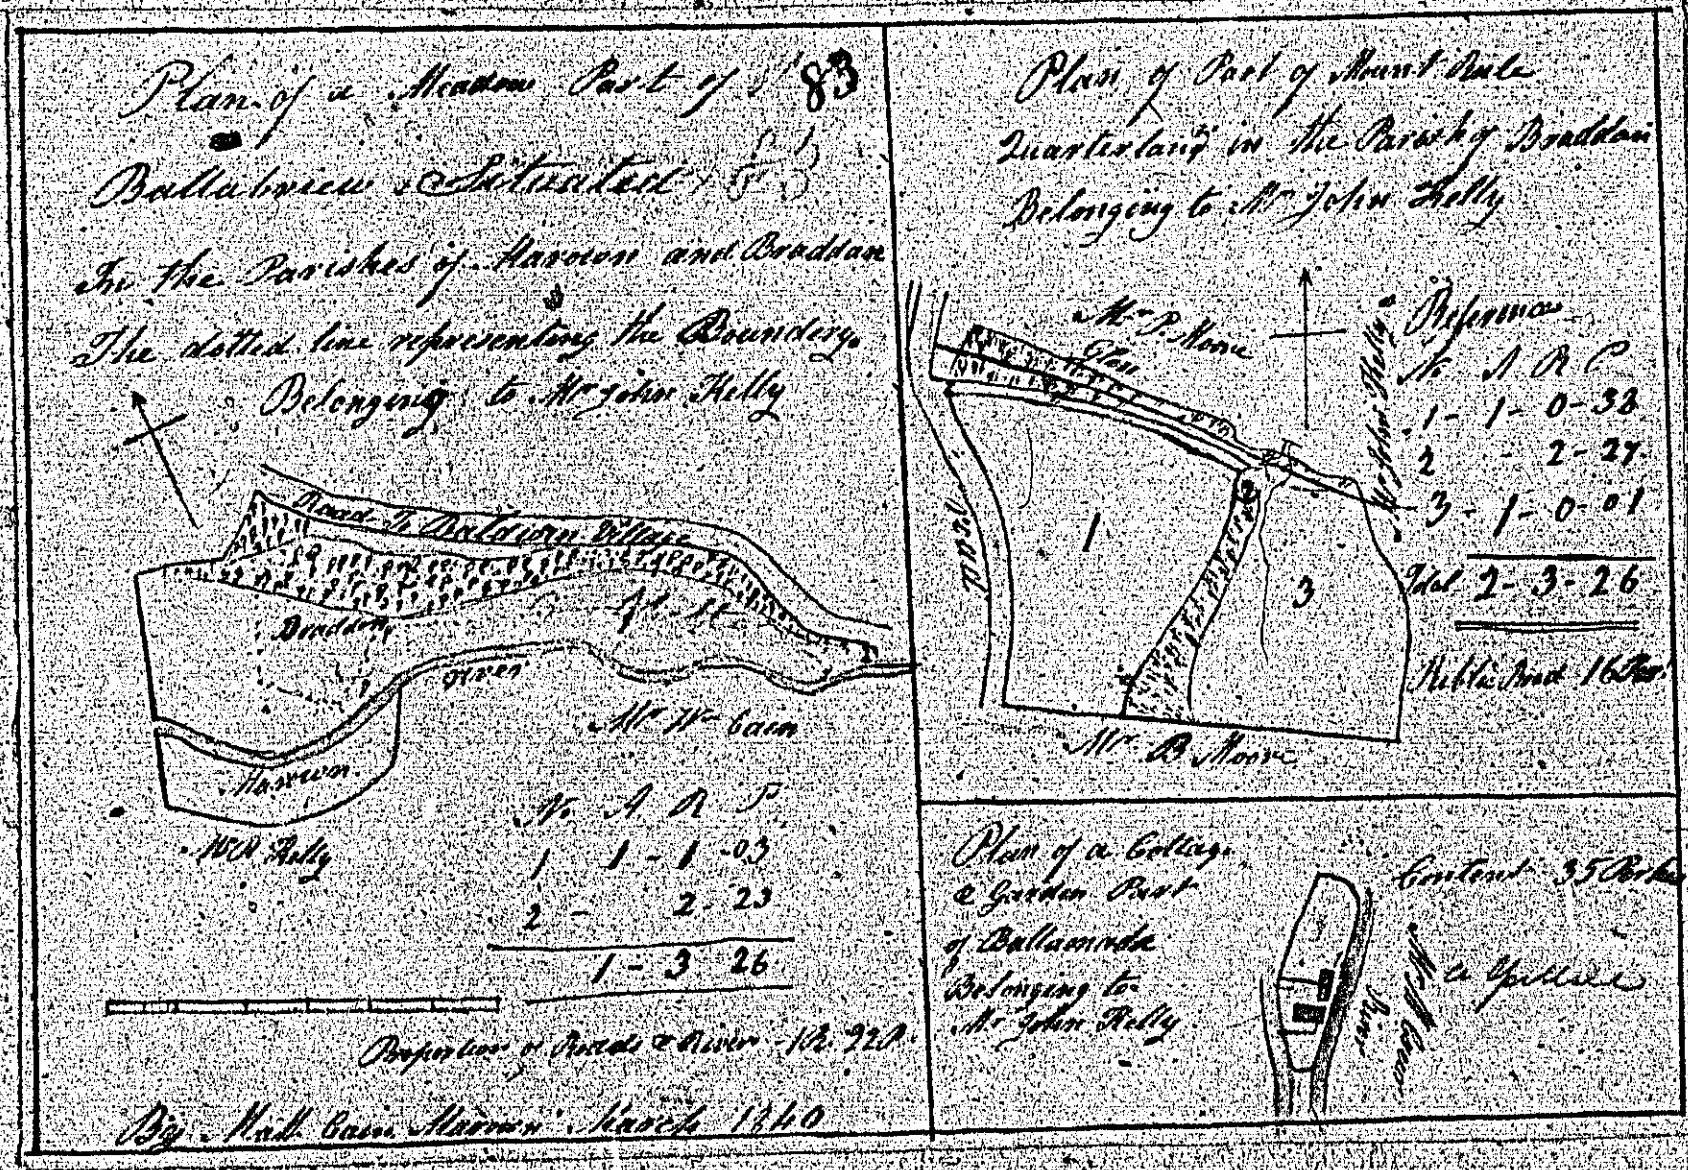 Plan of a Meadow Part of
83
Situated
In the Parishes of Marown and Braddan
The dotted line representing the Boundery.
Belonging to Mr John Kelly
Road To Baldwin Village
Braddan
River
Mr Wm Cain
Marown.
Kelly
No. A R P
1 1 - 1 - 03
2 - 2 - 23
1 - 3 26
Proportion of Roads & River - 1R. 22P.
By Matt. Cain Marown March 1840
Plan of Part of Mount Rule
Quarterland in the Parish of Braddan
Belonging to Mr John Kelly
Mr P. Moore
Glen
Mr John Kelly
Reference
No A R P
1 - 1 - 0 - 38
2 - 2 - 27
3 - 1 - 0 - 01
Total 2 - 3 - 26
Public Road 16 Per.
Road
1
3
Mr. B Moore
Plan of a Cottage
& Garden Part
of
Belonging to
Mr John Kelly
Content 35 Perches
River